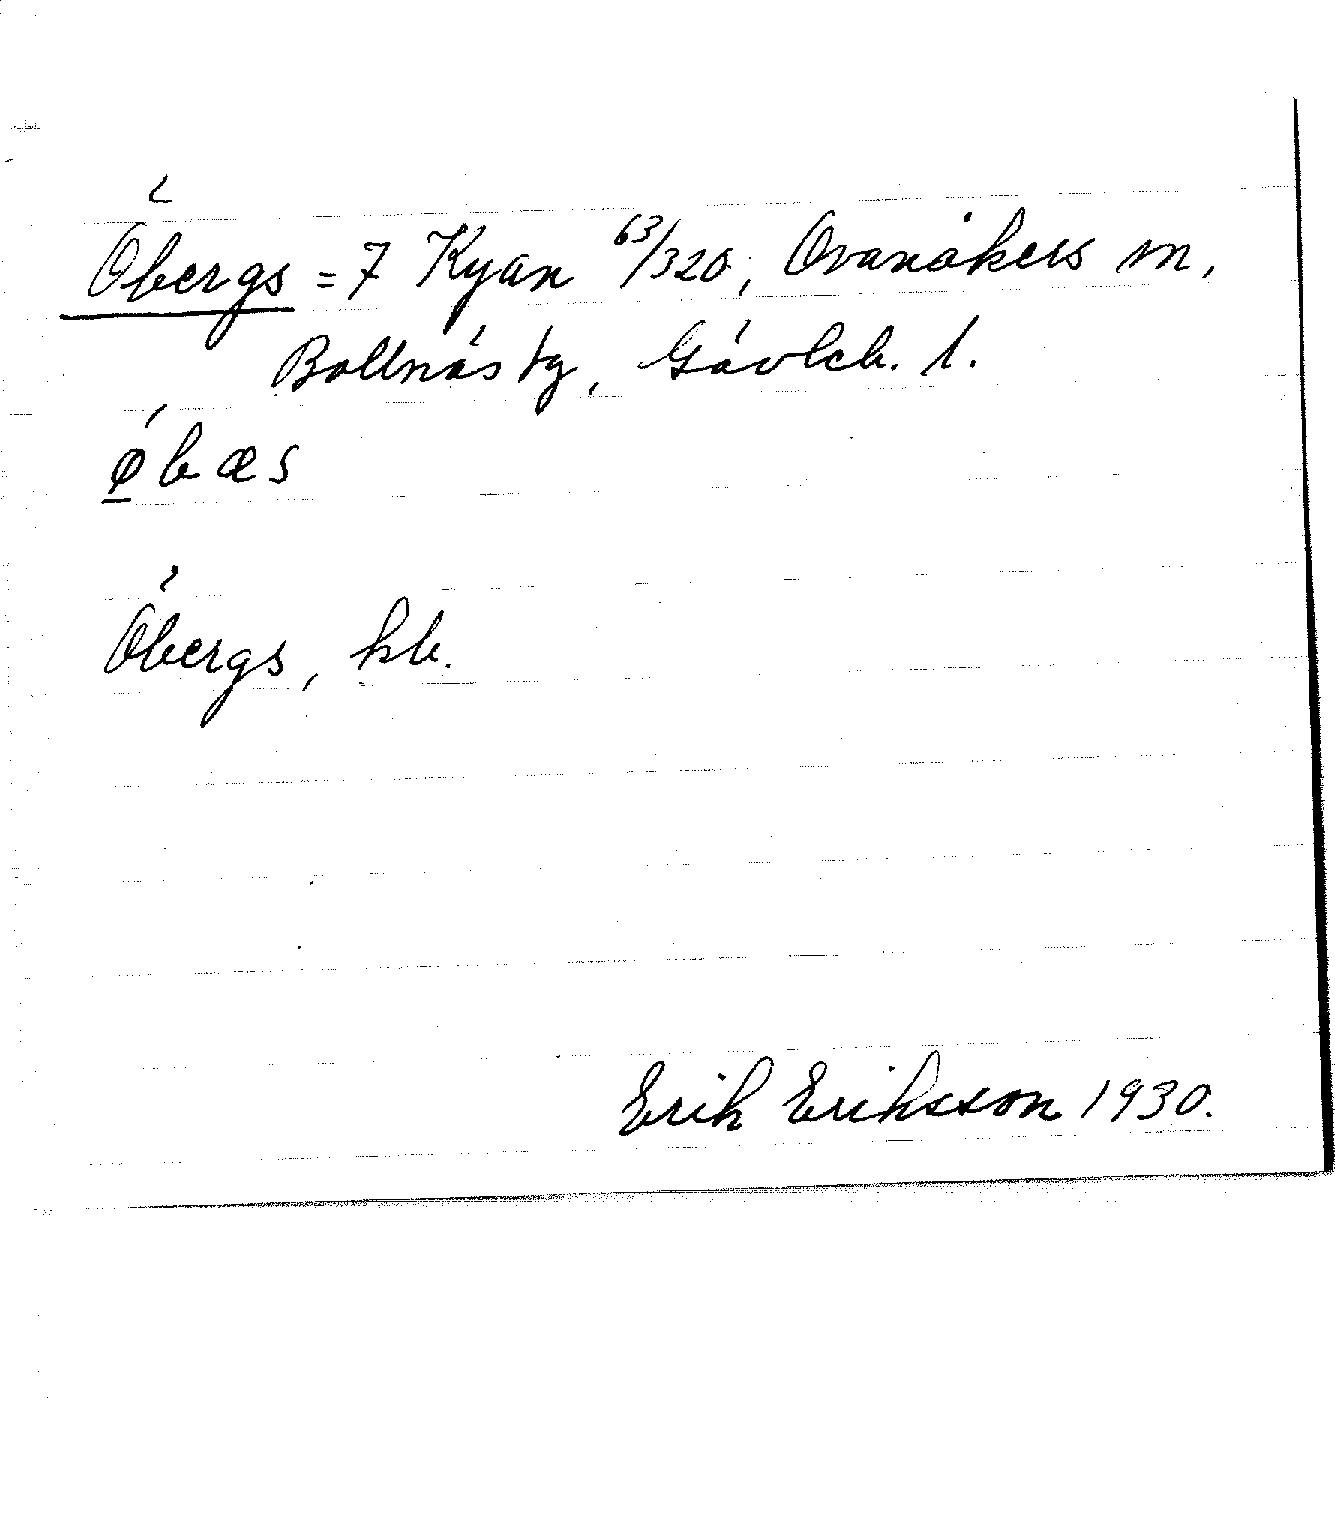 Öbergs = 7 Kyan 63/320, Ovanåkers sn,
Bollnäs tg, Gävleb. l.
ǿbæs
Öbergs, kb.
Erik Eriksson 1930.